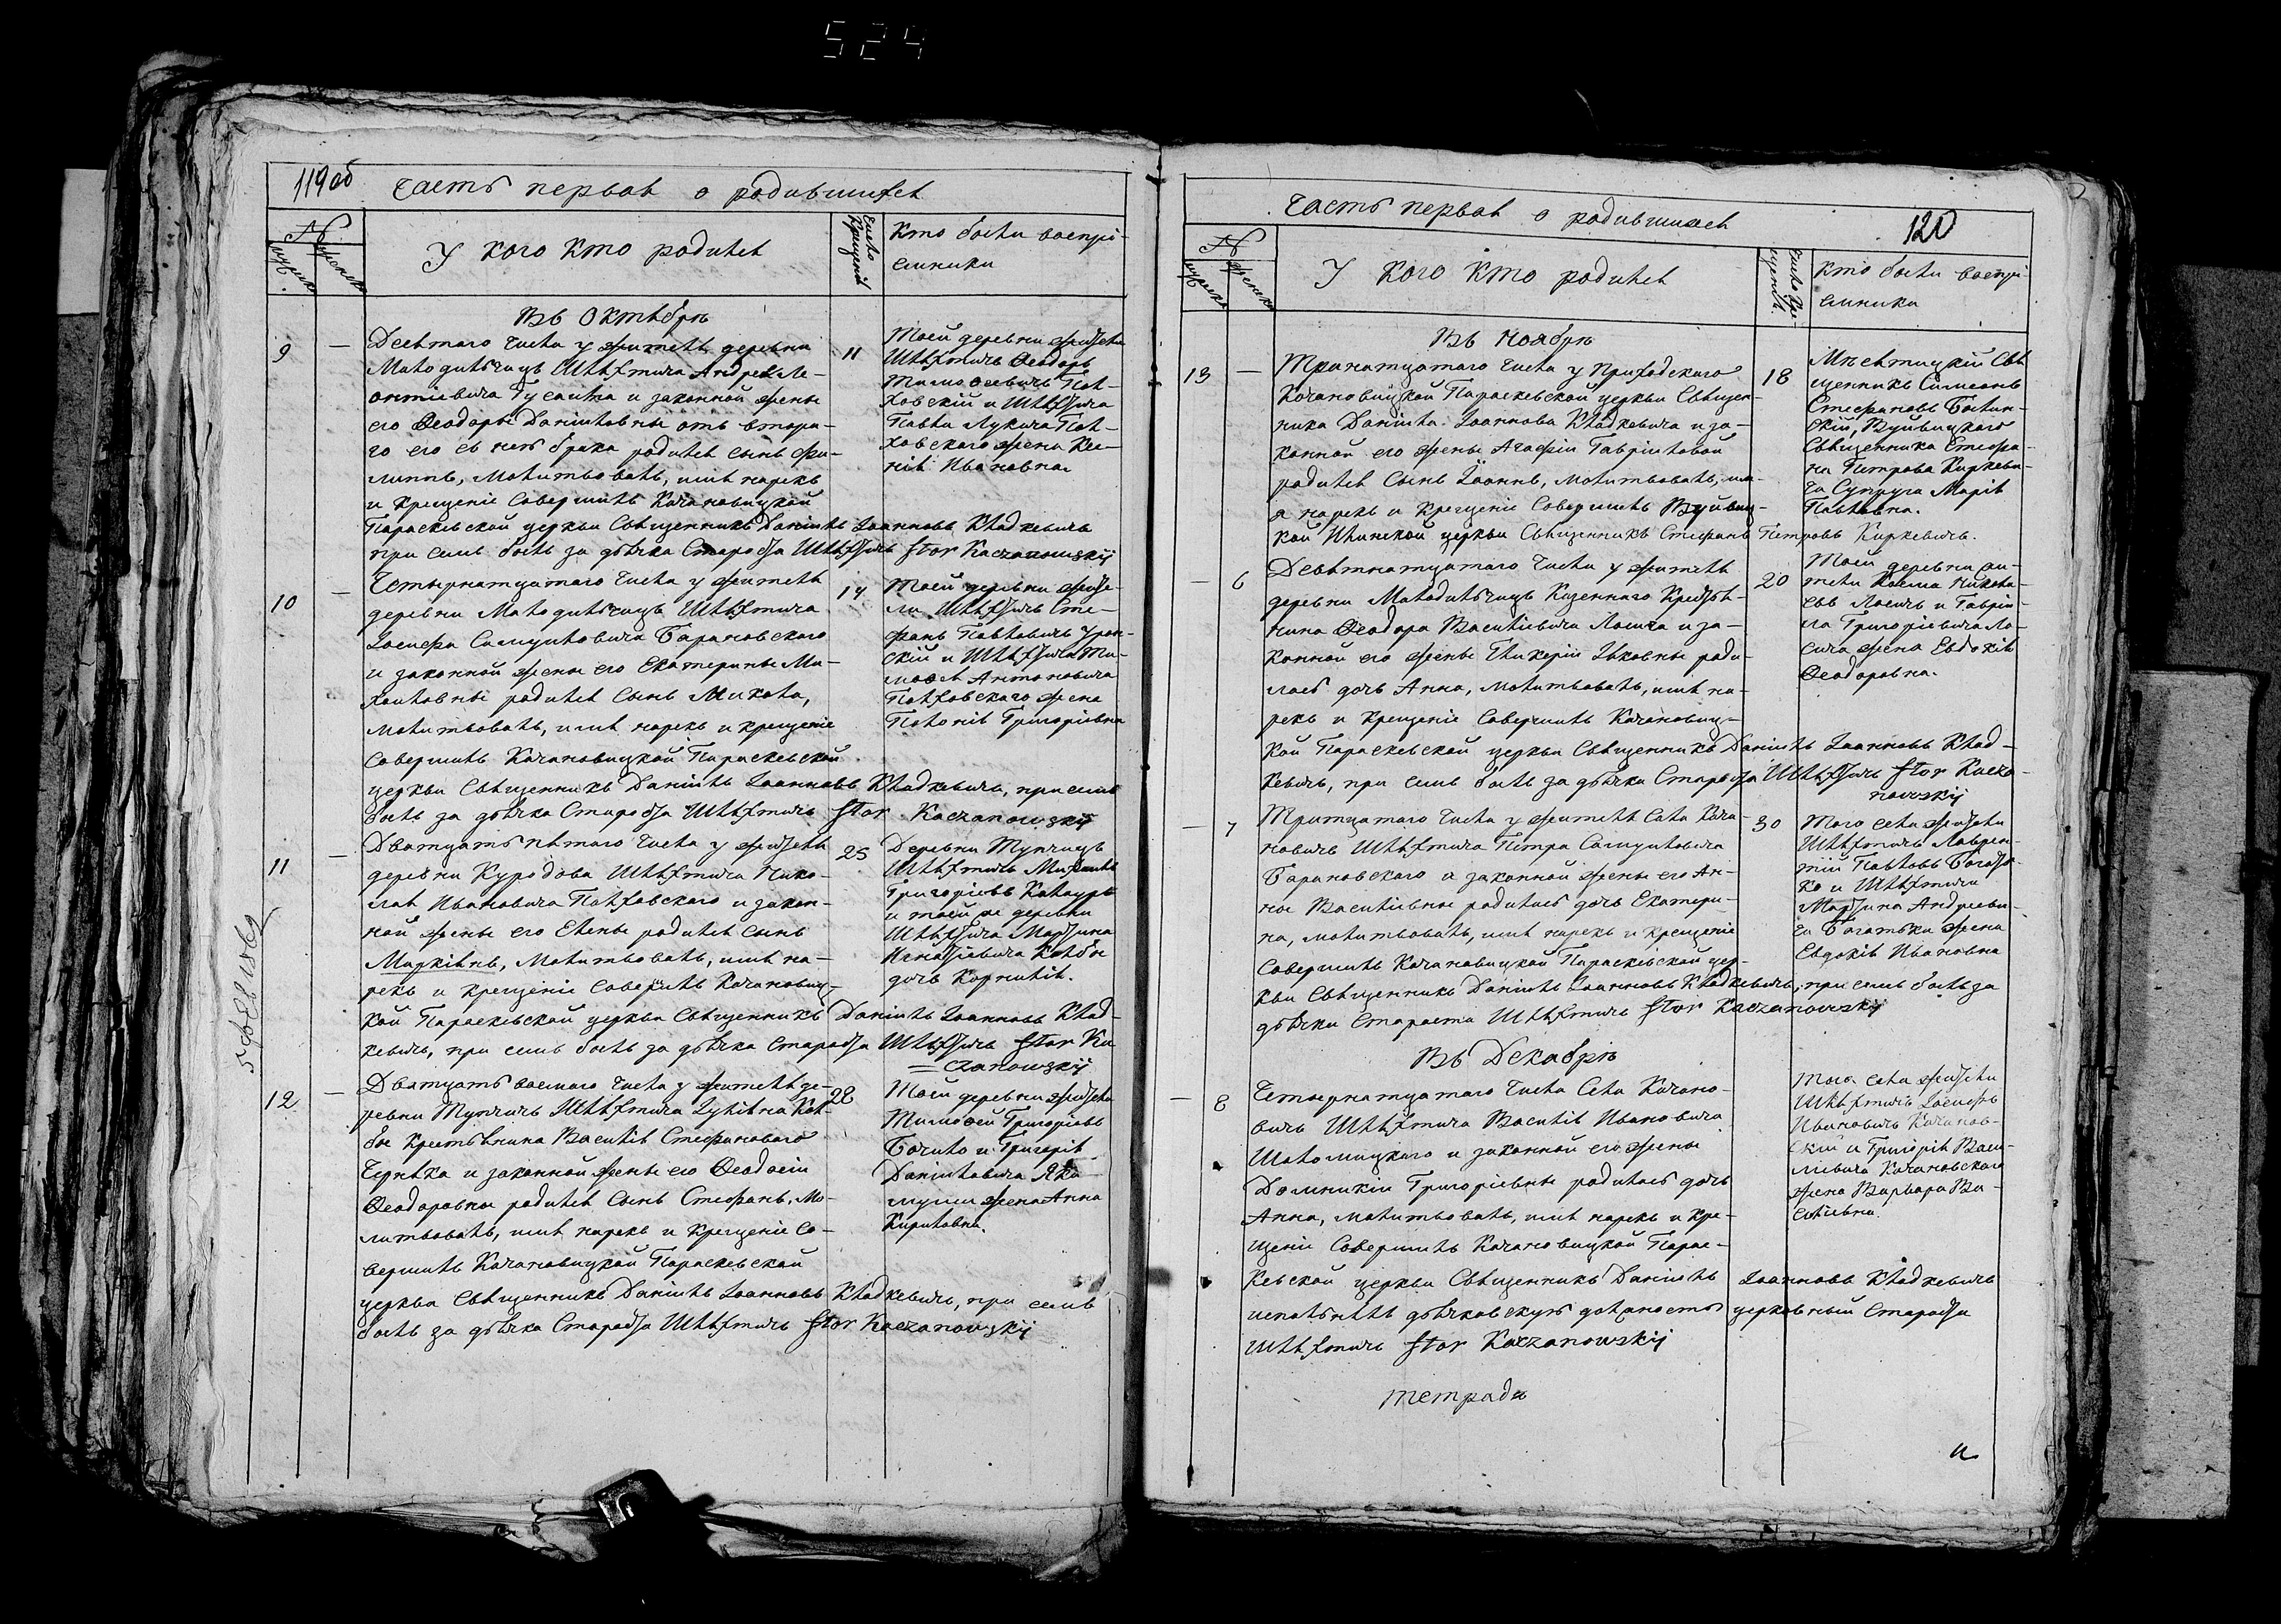 524
119 об
Часть первая о родившихся
№
мужеска
женска
У кого кто родился
Число крещенія
Кто были воспрі-
емники
Въ Октябрѣ
9 — Девятаго числа у жителя деревни
Малодитьчицъ Шляхтича Андрея Ле-
онтіевича Гусаита и законной жены
его Ѳеодоры Даниловны отъ втора-
го его съ нею брака родился сынъ Фи-
липпъ, молитвовалъ, имя нарекъ
и крещеніе совершилъ Качановицкой
Параскевской церкви Священникъ Даніилъ Іоанновъ Кладкевичъ
при семъ былъ за дьячка Староста Шляхтичъ Jtor Kaczanowskij
11
Тоей деревни жители
Шляхтичъ Ѳеодоръ
Тимоѳеевичъ Пол-
ховскій и Шляхтича
Павла Лукича Пол-
ховскаго жена Ксе-
нія Ивановна
10 — Четырнатцатаго числа у жителя
деревни Малодитьчицъ Шляхтича
Іосифа Самуиловича Барановскаго
и законной жены его Екатерины Ми-
хаиловны родился сынъ Микола,
молитвовалъ, имя нарекъ и крещеніе
совершилъ Качановицкой Параскевской
церкви Священникъ Даніилъ Іоанновъ Кладкевичъ, при семъ
былъ за дьячка Староста Шляхтичъ Jtor Kaczanowskij
14
Тоей деревни жите-
ли Шляхтичъ Сте-
фанъ Павловичъ
скій и Шляхтича Ти-
моѳея Антоновича
Полховскаго жена
Полонія Григоріовна
11 — Дватцать пятаго числа у жителя
деревни Куродова Шляхтича Нико-
лая Ивановича Полховскаго и закон-
ной жены его Елены родился сынъ
молитвовалъ, имя на-
рекъ и крещеніе совершилъ Качановиц-
кой Параскевской церкви Священникъ Даніилъ Іоанновъ Клад-
кевичъ, при семъ былъ за дьячка Староста Шляхтичъ Jtor Ka-
czanowskij
25
Деревни Тупчицъ
Шляхтичъ Михаилъ
Григоріевъ
и тоей же деревни
Шляхтича Мартина
дочь Корнилія.
12 — Дватцать восмаго числа у жителя де-
ревни Тупчичъ Шляхтича
крестьянина Василія Стефановаго
и законной жены его Ѳеодосіи
Ѳеодоровны родился сынъ Стефанъ, мо-
литвовалъ, имя нарекъ и крещеніе со-
вершилъ Качановицкой Параскевской
церкви Священникъ Даніилъ Іоанновъ Кладкевичъ, при семъ
былъ за дьячка Староста Шляхтичъ Jtor Kaczanowskij
28
Тоей деревни жители
Тимоѳей Григоріовъ
и Григорія
Даниловича
жена Анна
Кириловна.
Часть первая о родившихся
120
№
мужеска
женска
У кого кто родился
Число кре-
щенія.
Кто были воспрі-
емники
Въ Ноябрѣ
13 — Тринатцатаго числа у приходскаго
Качановицкой Параскевской церкви Священ-
ника Даніила Іоаннова Кладкевича и за-
конной его жены Агафіи Гавріиловой
родился сынъ Іоаннъ, молитвовалъ, им-
я нарекъ и крещеніе совершилъ Вуйвиц-
кой Ильинской церкви Священникъ Стефанъ Петровъ Киркевичъ.
18
Мѣстицкій Свя-
щенникъ Симеонъ
Стефановъ
скій, Вуйвицкаго
Священника Стефа-
на Петрова Киркеви-
ча супруга Марія
Павловна.
— 6 Девятнатцатаго числа у жителя
деревни Малодитьчицъ казеннаго крестья-
нина Ѳеодора Василіевича Лосича и за-
конной его жены Гликеріи Яковны роди-
лась дочь Анна, молитвовалъ, имя на-
рекъ и крещеніе совершилъ Качановиц-
кой Параскевской церкви Священникъ Даніилъ Іоанновъ Клад-
кевичъ, при семъ былъ за дьячка Староста Шляхтичъ Jtor Kacza-
nowskij
20
Тоей деревни жи-
тели Косма Никола-
евъ Лосичъ и Гавріи-
ла Григоріевича Ло-
сича жена Евдокія
Ѳеодоровна.
— 7 Тритцатаго числа у жителя села Кача-
новичъ Шляхтича Петра Самуиловича
Барановскаго и законной жены его Ан-
ны Василіевны родилась дочь Екатери-
на, молитвовалъ, имя нарекъ и крещеніе
совершилъ Качановицкой Параскевской цер-
кви Священникъ Даніилъ Іоанновъ Кладкевичъ, при семъ былъ за
дьячка Староста Шляхтичъ Jtor Kaczanowskij
30
Того села жители
Шляхтичъ Лаврен-
тій Павловъ Богать-
ко и Шляхтича
Мартина Андрееви-
ча Богатьки жена
Евдокія Ивановна
Въ Декабрѣ
— 8 Четырнатцатаго числа села Качано-
вичъ Шляхтича Василія Ивановича
Шоломицкаго и законной его жены
Домникіи Григоріевны родилась дочь
Анна, молитвовалъ, имя нарекъ и кре-
щеніе совершилъ Качановицкой Парас-
кевской церкви Священникъ Даніилъ Іоанновъ Кладкевичъ
исполнялъ дьячковскую должность церковный Староста
Шляхтичъ Jtor Kaczanowskij
Того села жители
Шляхтичъ Іосифъ
Ивановичъ Качанов-
скій и Григорія Васи-
лиевича Качановскаго
жена Варвара Ва-
силіевна.
тетради